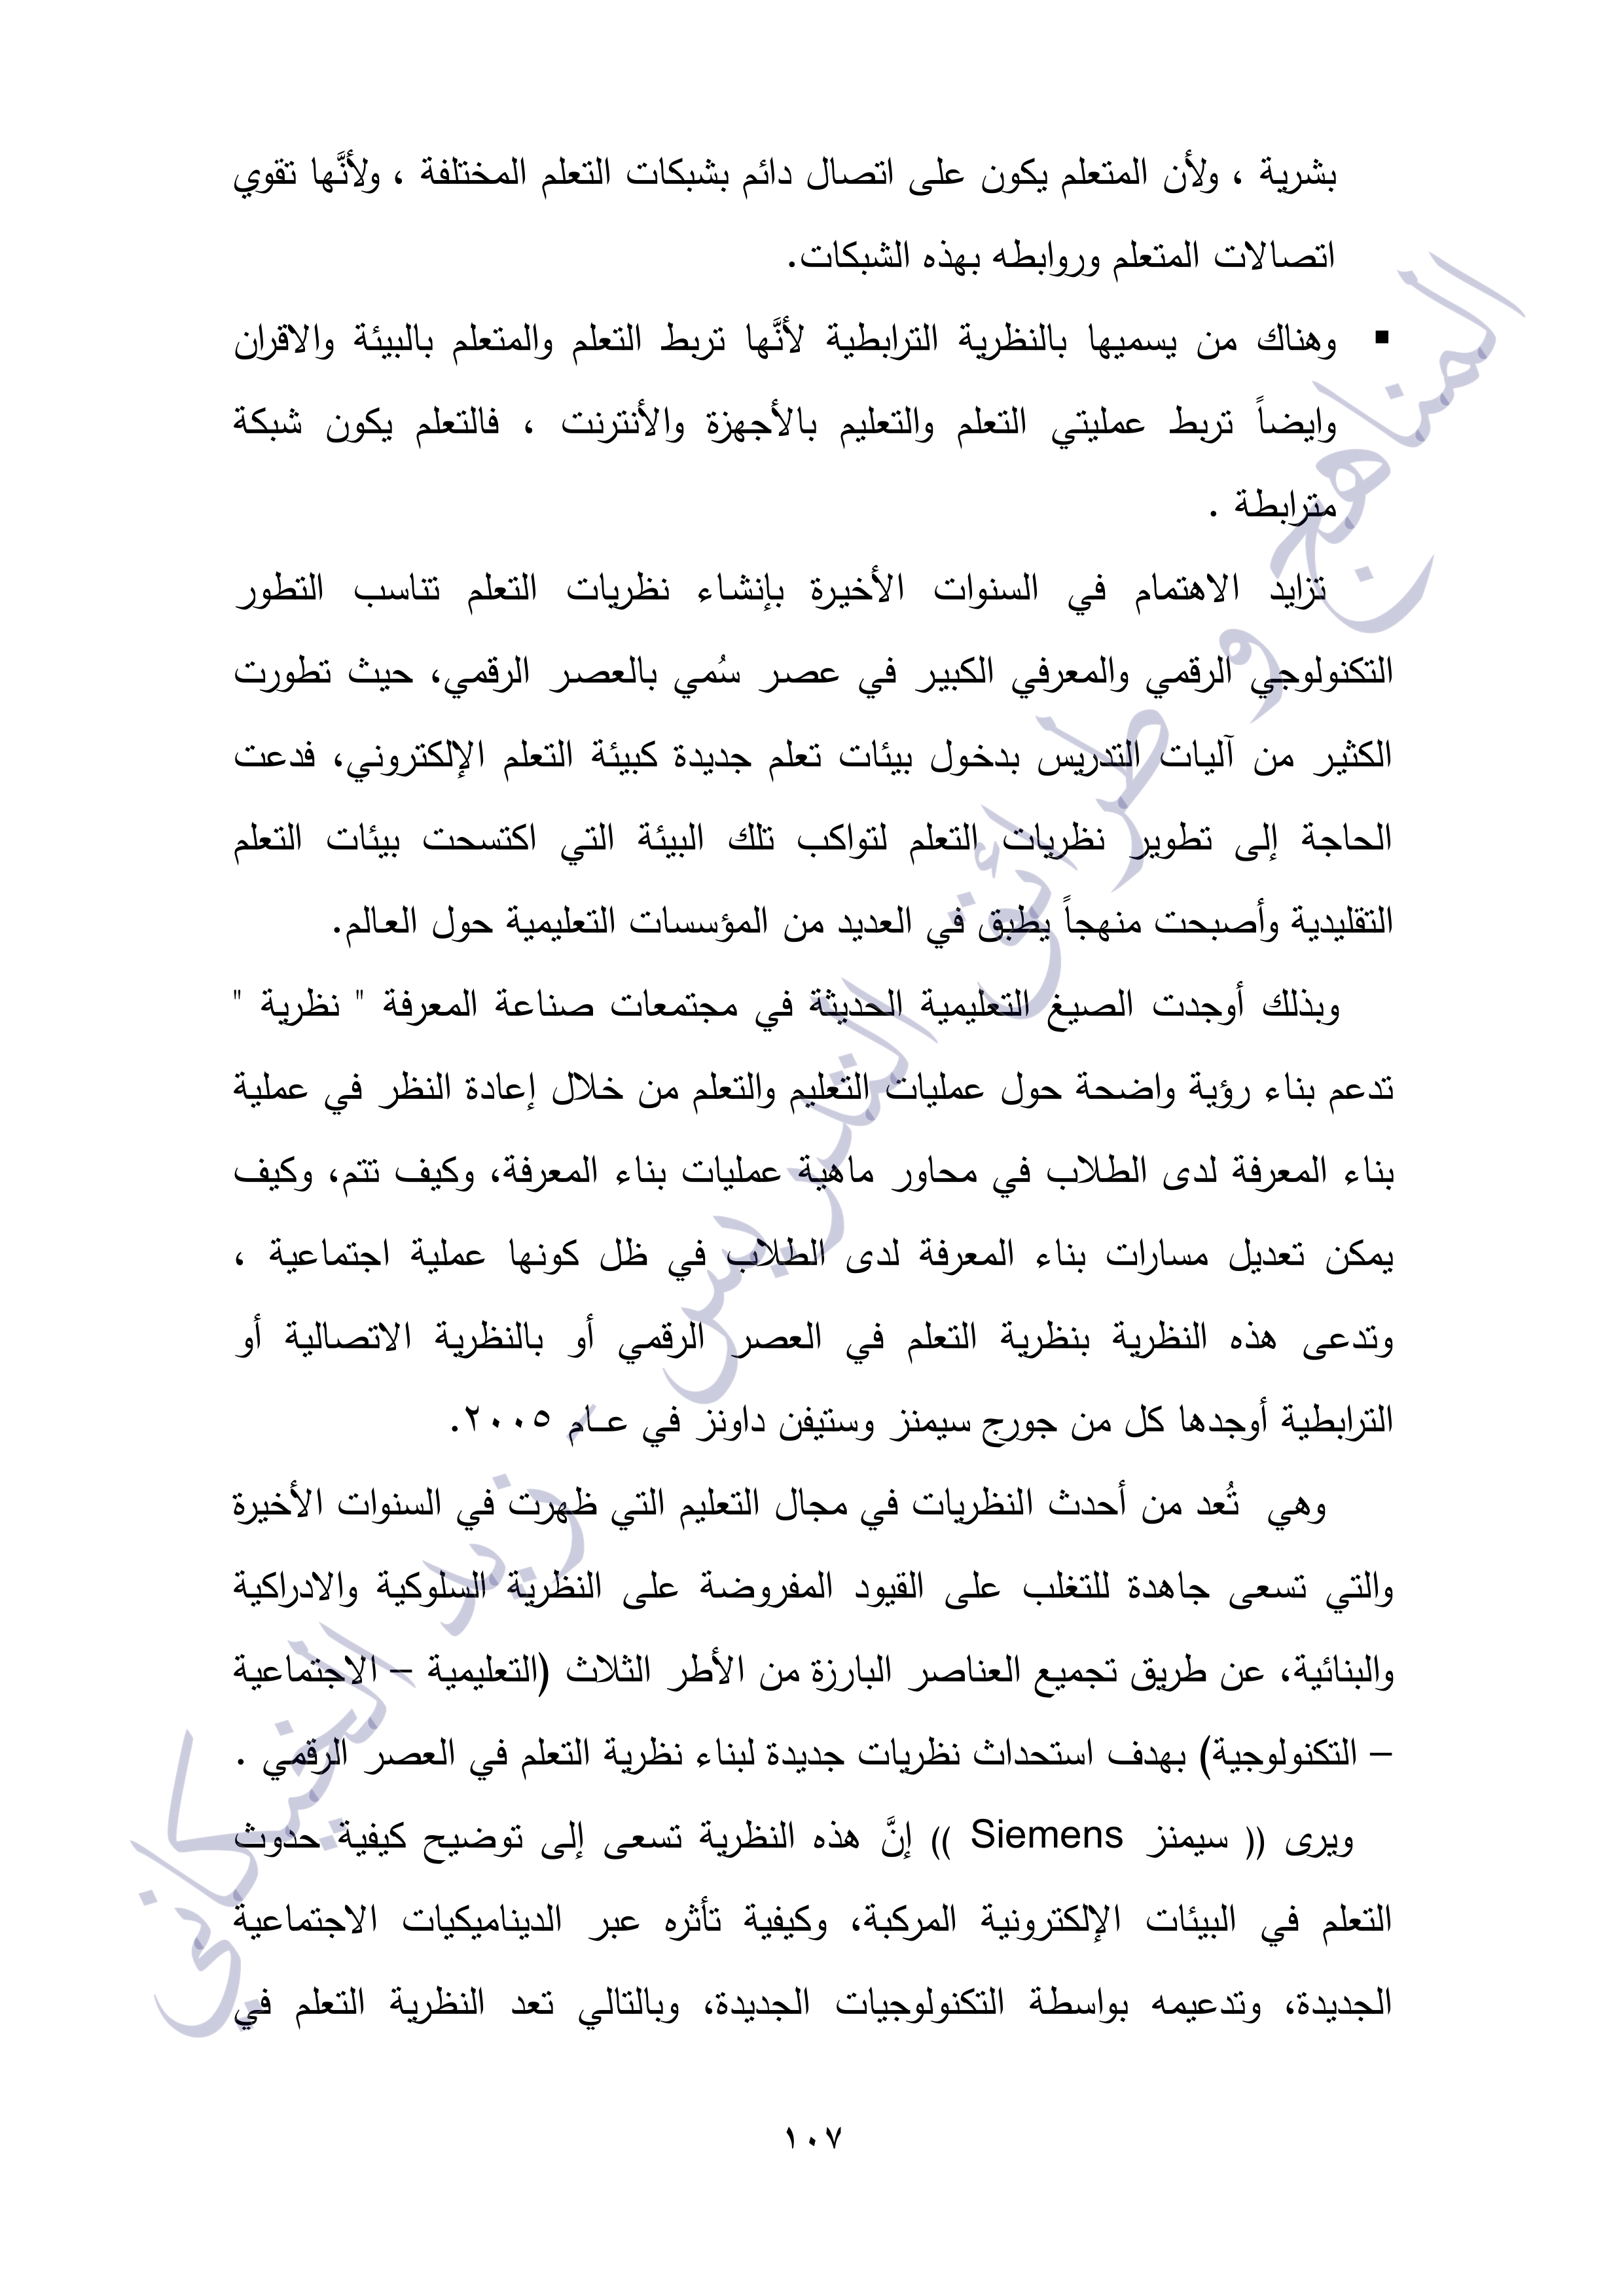 بشرية ، ولأن المتعلم يكون على اتصال دائم بشبكات التعلم المختلفة ، ولأنَّها تقوي
اتصالات المتعلم وروابطه بهذه الشبكات.
▪ وهناك من يسميها بالنظرية الترابطية لأنَّها تربط التعلم والمتعلم بالبيئة والاقران
وايضاً تربط عمليتي التعلم والتعليم بالأجهزة والأنترنت ، فالتعلم يكون شبكة
مترابطة .
تزايد الاهتمام في السنوات الأخيرة بإنشاء نظريات التعلم تناسب التطور
التكنولوجي الرقمي والمعرفي الكبير في عصر سُمي بالعصر الرقمي، حيث تطورت
الكثير من آليات التدريس بدخول بيئات تعلم جديدة كبيئة التعلم الإلكتروني، فدعت
الحاجة إلى تطوير نظريات التعلم لتواكب تلك البيئة التي اكتسحت بيئات التعلم
التقليدية وأصبحت منهجاً يطبق في العديد من المؤسسات التعليمية حول العالم.
وبذلك أوجدت الصيغ التعليمية الحديثة في مجتمعات صناعة المعرفة " نظرية "
تدعم بناء رؤية واضحة حول عمليات التعليم والتعلم من خلال إعادة النظر في عملية
بناء المعرفة لدى الطلاب في محاور ماهية عمليات بناء المعرفة، وكيف تتم، وكيف
يمكن تعديل مسارات بناء المعرفة لدى الطلاب في ظل كونها عملية اجتماعية ،
وتدعى هذه النظرية بنظرية التعلم في العصر الرقمي أو بالنظرية الاتصالية أو
الترابطية أوجدها كل من جورج سيمنز وستيفن داونز في عـام ٢٠٠٥.
وهي تُعد من أحدث النظريات في مجال التعليم التي ظهرت في السنوات الأخيرة
والتي تسعى جاهدة للتغلب على القيود المفروضة على النظرية السلوكية والادراكية
والبنائية، عن طريق تجميع العناصر البارزة من الأطر الثلاث (التعليمية – الاجتماعية
– التكنولوجية) بهدف استحداث نظريات جديدة لبناء نظرية التعلم في العصر الرقمي .
ويرى (( سيمنز Siemens )) إنَّ هذه النظرية تسعى إلى توضيح كيفية حدوث
التعلم في البيئات الإلكترونية المركبة، وكيفية تأثره عبر الديناميكيات الاجتماعية
الجديدة، وتدعيمه بواسطة التكنولوجيات الجديدة، وبالتالي تعد النظرية التعلم في
١٠٧
المناهج و طرائق التدريس - زيد الخيكاني